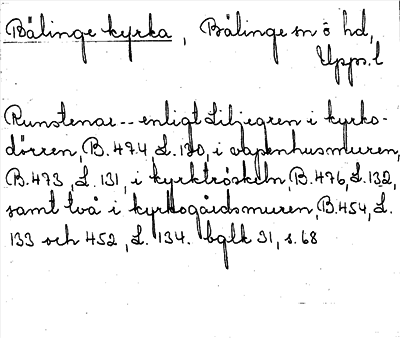 Bälinge kyrka, Bälinge sn o hd,
Upps. l
Runstenar -- enligt Liljegren i kyrko-
dörren, B. 474, L. 130, i vapenhusmuren,
B. 473, L. 131, i kyrktröskeln, B. 476, L. 132,
samt två i kyrkogårdsmuren, B. 454, L.
133 och 452, L. 134. bglk 31, s. 68